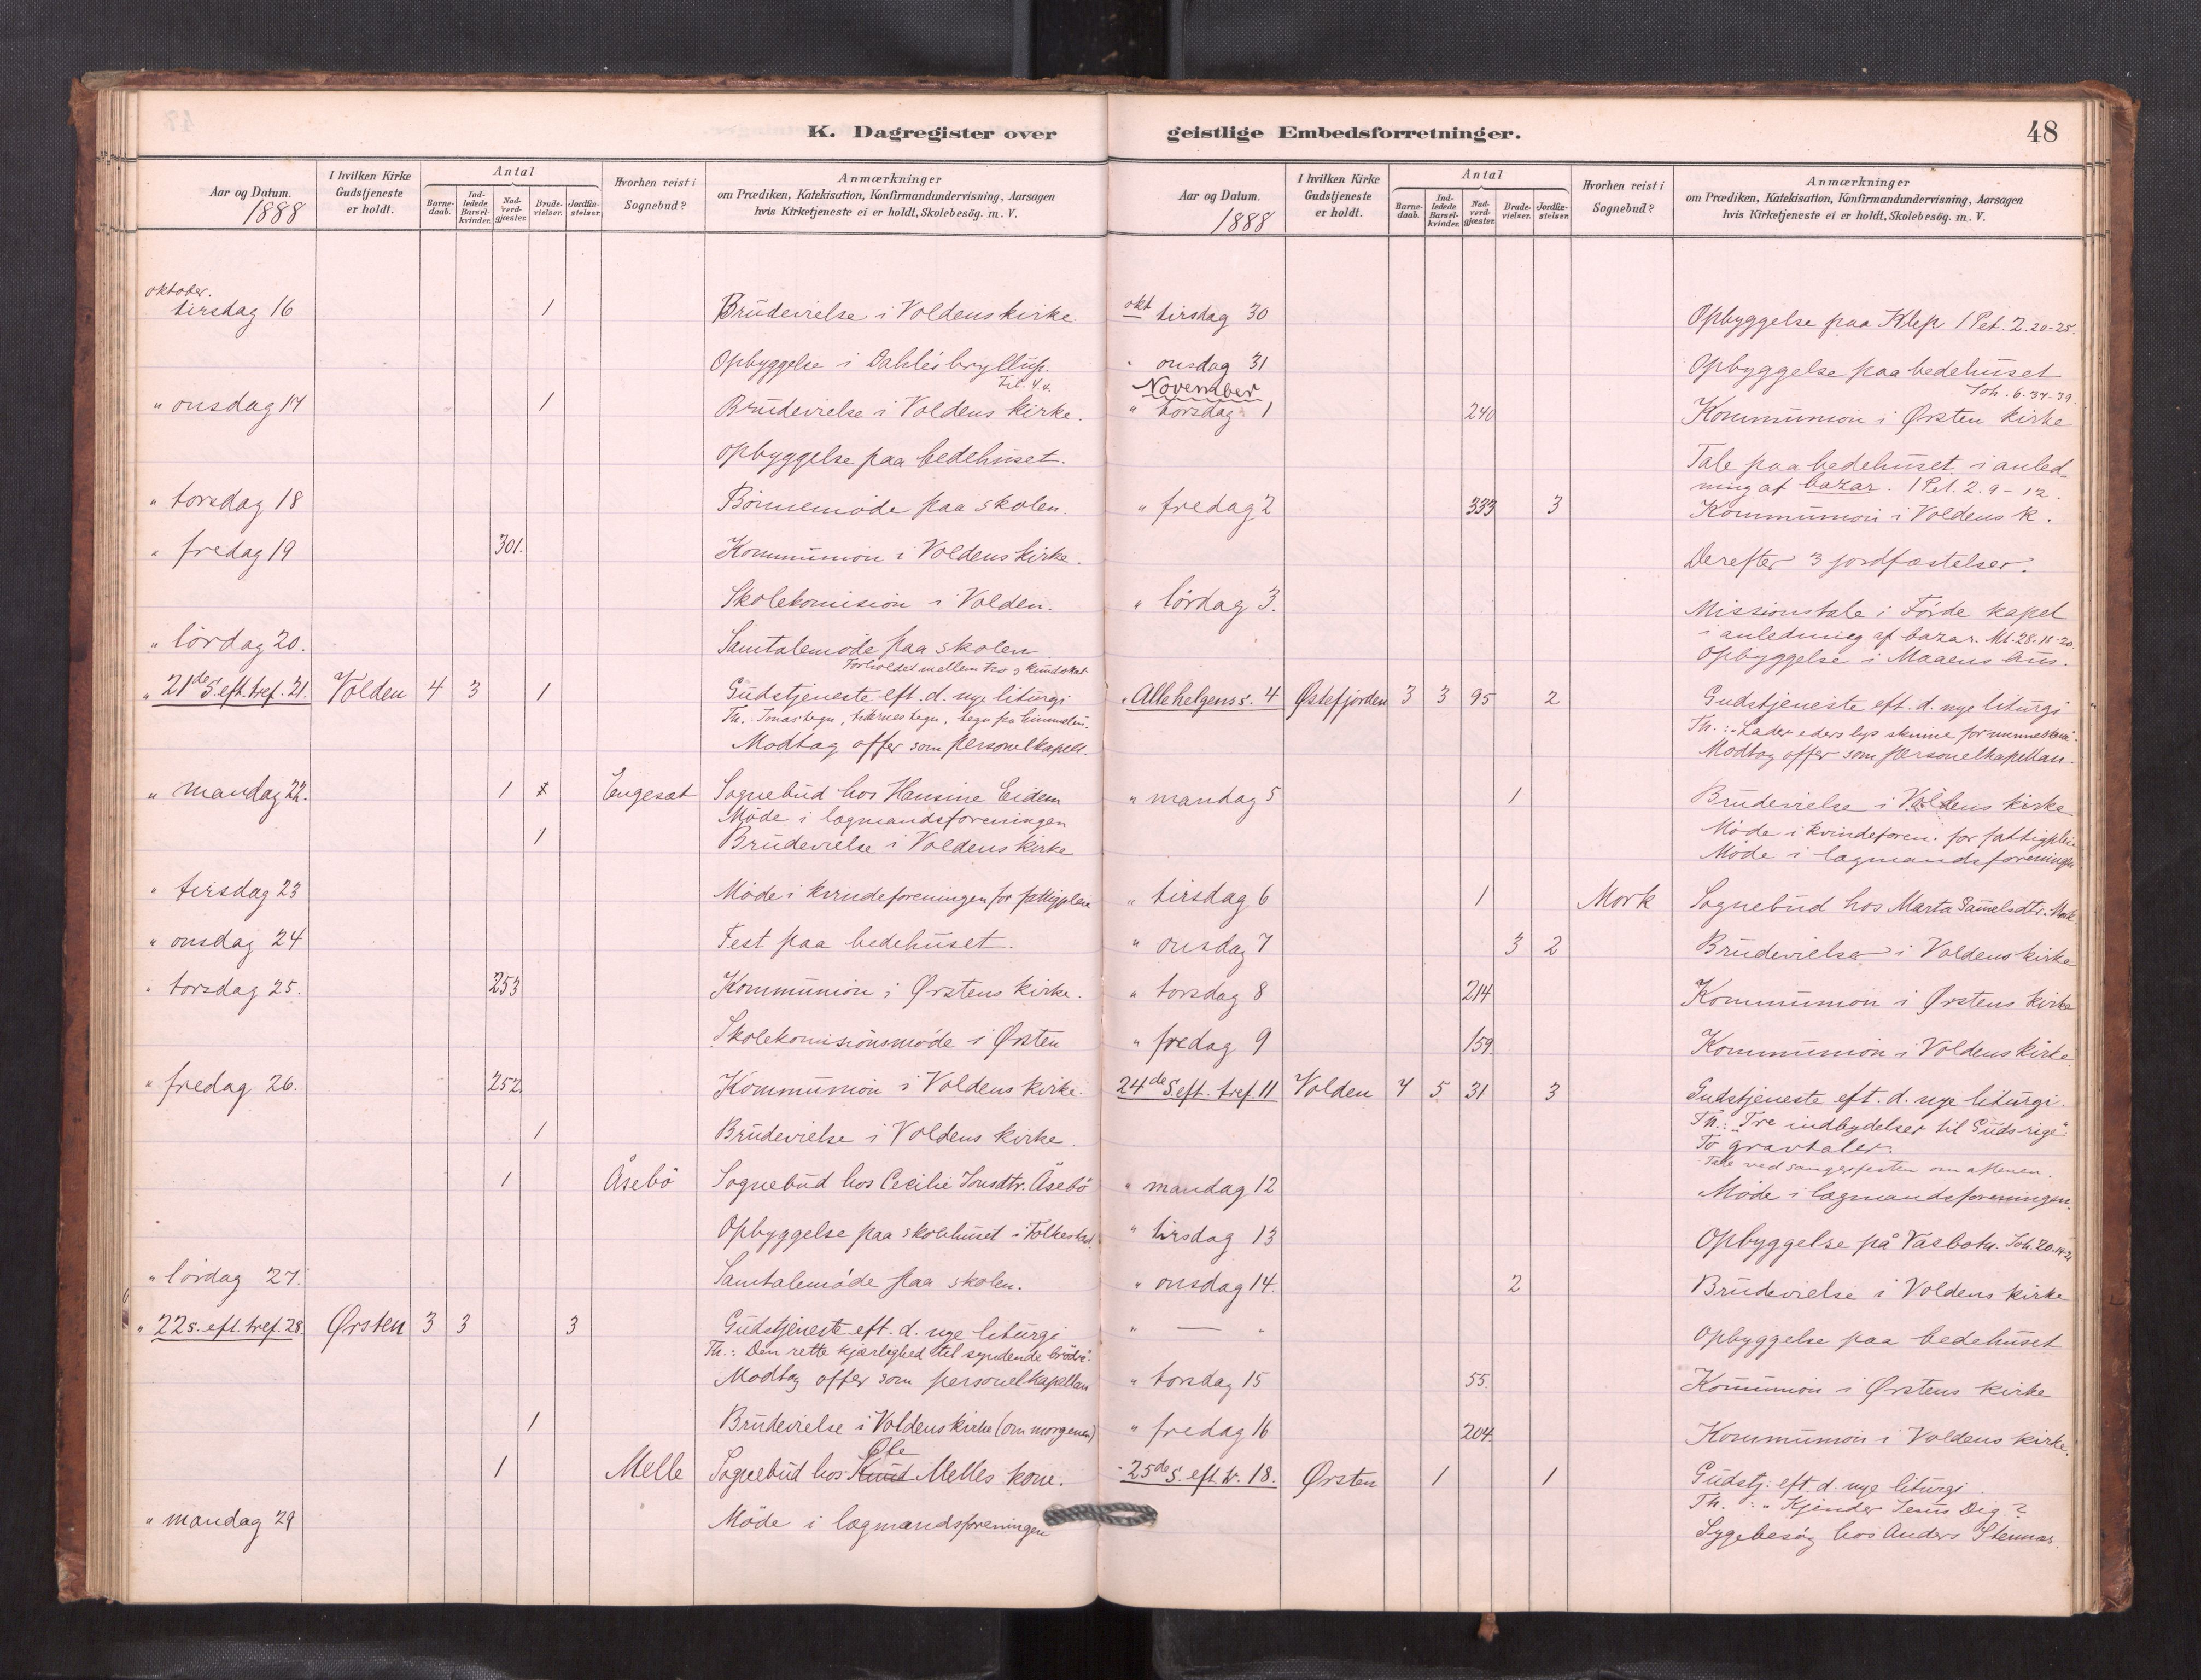 K. Dagregister over
Aar og Datum.
1888
I hvilken Kirke
Gudstjeneste
er holdt.
Antal
Barne-
daab.
Ind-
ledede
Barsel-
kvinder.
Nad-
verd-
gjæster.
Brude-
vielser.
Jordfæ-
stelser.
Hvorhen reist i
Sognebud?
Anmærkninger
om Prædiken, Katekisation, Konfirmandundervisning, Aarsagen
hvis Kirketjeneste ei er holdt, Skolebesög. m. V.
oktober.
tirsdag 16 1 Brudevielse i Voldens kirke.
Opbyggelse i Dahles bryllup.
" onsdag 17 1 Brudevielse i Voldens kirke.
Opbyggelse paa bedehuset.
" torsdag 18 Börnemöde paa skolen.
" fredag 19 301. Kommunion i Voldens kirke.
Skolekomision i Volden.
" lördag 20. Samtalemöde paa skolen
Forholdet mellem tro og kundskab
" 21de S. eft. tref. 21. Volden 4 3 1 Gudstjeneste eft. d. nye liturgi
Th. Jonas tegn, tidernes tegn, tegn fra himmelen.
Modtog offer som personelkapell.
" mandag 22. 1 Engeset Sognebud hos Hansine Eidem
Möde i lægmandsforeningen
1 Brudevielse i Voldens kirke
" tirsdag 23 Möde i kvindeforeningen for fattigpleie
" onsdag 24 Fest paa bedehuset.
" torsdag 25. 253 Kommunion i Ørstens kirke.
Skolekomisionsmöde i Ørsten
" fredag 26. 252 Kommunion i Voldens kirke.
1 Brudevielse i Voldens kirke.
1 Åsebö Sognebud hos Cecilie Jonsdtr. Åsebö
Opbyggelse paa skolehuset i Folkestad.
" lördag 27. Samtalemöde paa skolen.
" 22 s. eft. tref. 28 Ørsten 3 3 3 Gudstjeneste eft. d. nye liturgi
Th.: Den rette kjærlighed til syndende brödre.
Modtog offer som personelkapellan
1 Brudevielse i Voldens kirke (om morgenen)
Ole
1 Melle Sognebud hos Knud Melles kone.
" mandag 29 Möde i lægmandsforeningen
geistlige Embedsforretninger.
48
Aar og Datum.
1888
I hvilken Kirke
Gudstjeneste
er holdt.
Antal
Barne-
daab.
Ind-
ledede
Barsel-
kvinder.
Nad-
verd-
gjæster.
Brude-
vielser.
Jordfæ-
stelser.
Hvorhen reist i
Sognebud?
Anmærkninger
om Prædiken, Katekisation, Konfirmandundervisning, Aarsagen
hvis Kirketjeneste ei er holdt, Skolebesög. m. V.
okt tirsdag 30 Opbyggelse paa Klep 1 Pet. 2. 20-25.
" onsdag 31 Opbyggelse paa bedehuset
Joh. 6. 37-39.
November
" torsdag 1 240 Kommunion i Ørsten kirke
Tale paa bedehuset i anled-
ning af bazar. 1 Pet. 2. 9-12.
" fredag 2 333 3 Kommunion i Voldens k.
Derefter 3 jordfæstelser.
" lördag 3. Missionstale i Förde kapel
i anledning af bazar. Mt. 28. 18-20
Opbyggelse i Maaens hus.
" Allehelgens s. 4 Østefjorden 3 3 95 2 Gudstjeneste eft. d. nye liturgi
Th.: "Lader eders lys skinne for menneskene".
Modtog offer som personelkapellan.
" mandag 5 1 Brudevielse i Voldens kirke
Möde i kvindeforen. for fattigpleie
Möde i lægmandsforeningen
" tirsdag 6 1 Mork Sognebud hos Marta Samelsdtr. Mork.
" onsdag 7 3 2 Brudevielser i Voldens kirke
" torsdag 8 214 Kommunion i Ørstens kirke
" fredag 9 159 Kommunion i Voldens kirke
24de S. eft. tref. 11 Volden 7 5 31 3 Gudstjeneste eft. d. nye liturgi.
Th.: "Tre indbydelser til Guds rige".
To gravtaler.
Tale ved sangerfesten om aftenen.
" mandag 12 Möde i lægmandsforeningen.
" tirsdag 13 Opbyggelse på Vasbotn.
" onsdag 14. 2 Brudevielse i Voldens kirke
" — " Opbyggelse paa bedehuset
" torsdag 15 55. Kommunion i Ørstens kirke
" fredag 16 204. Kommunion i Voldens kirke.
" 25de S. eft. tr. 18. Ørsten 1 1 Gudstj. eft. d. nye liturgi.
Th.: "Kjender Jesus Dig?
Sygebesög hos Anders Stennes.